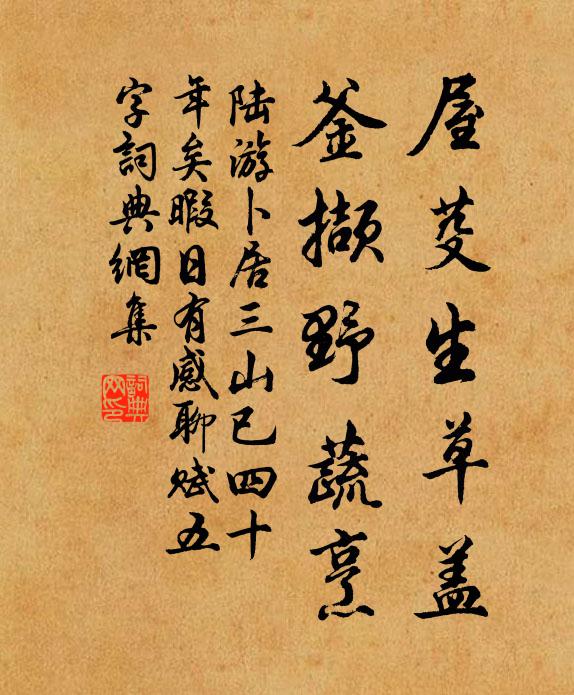 屋芟生草盖
釜擷野蔬烹
陸游卜居三山已四十
年矣暇日有感聊赋五
字詞典網集
詞典
网印